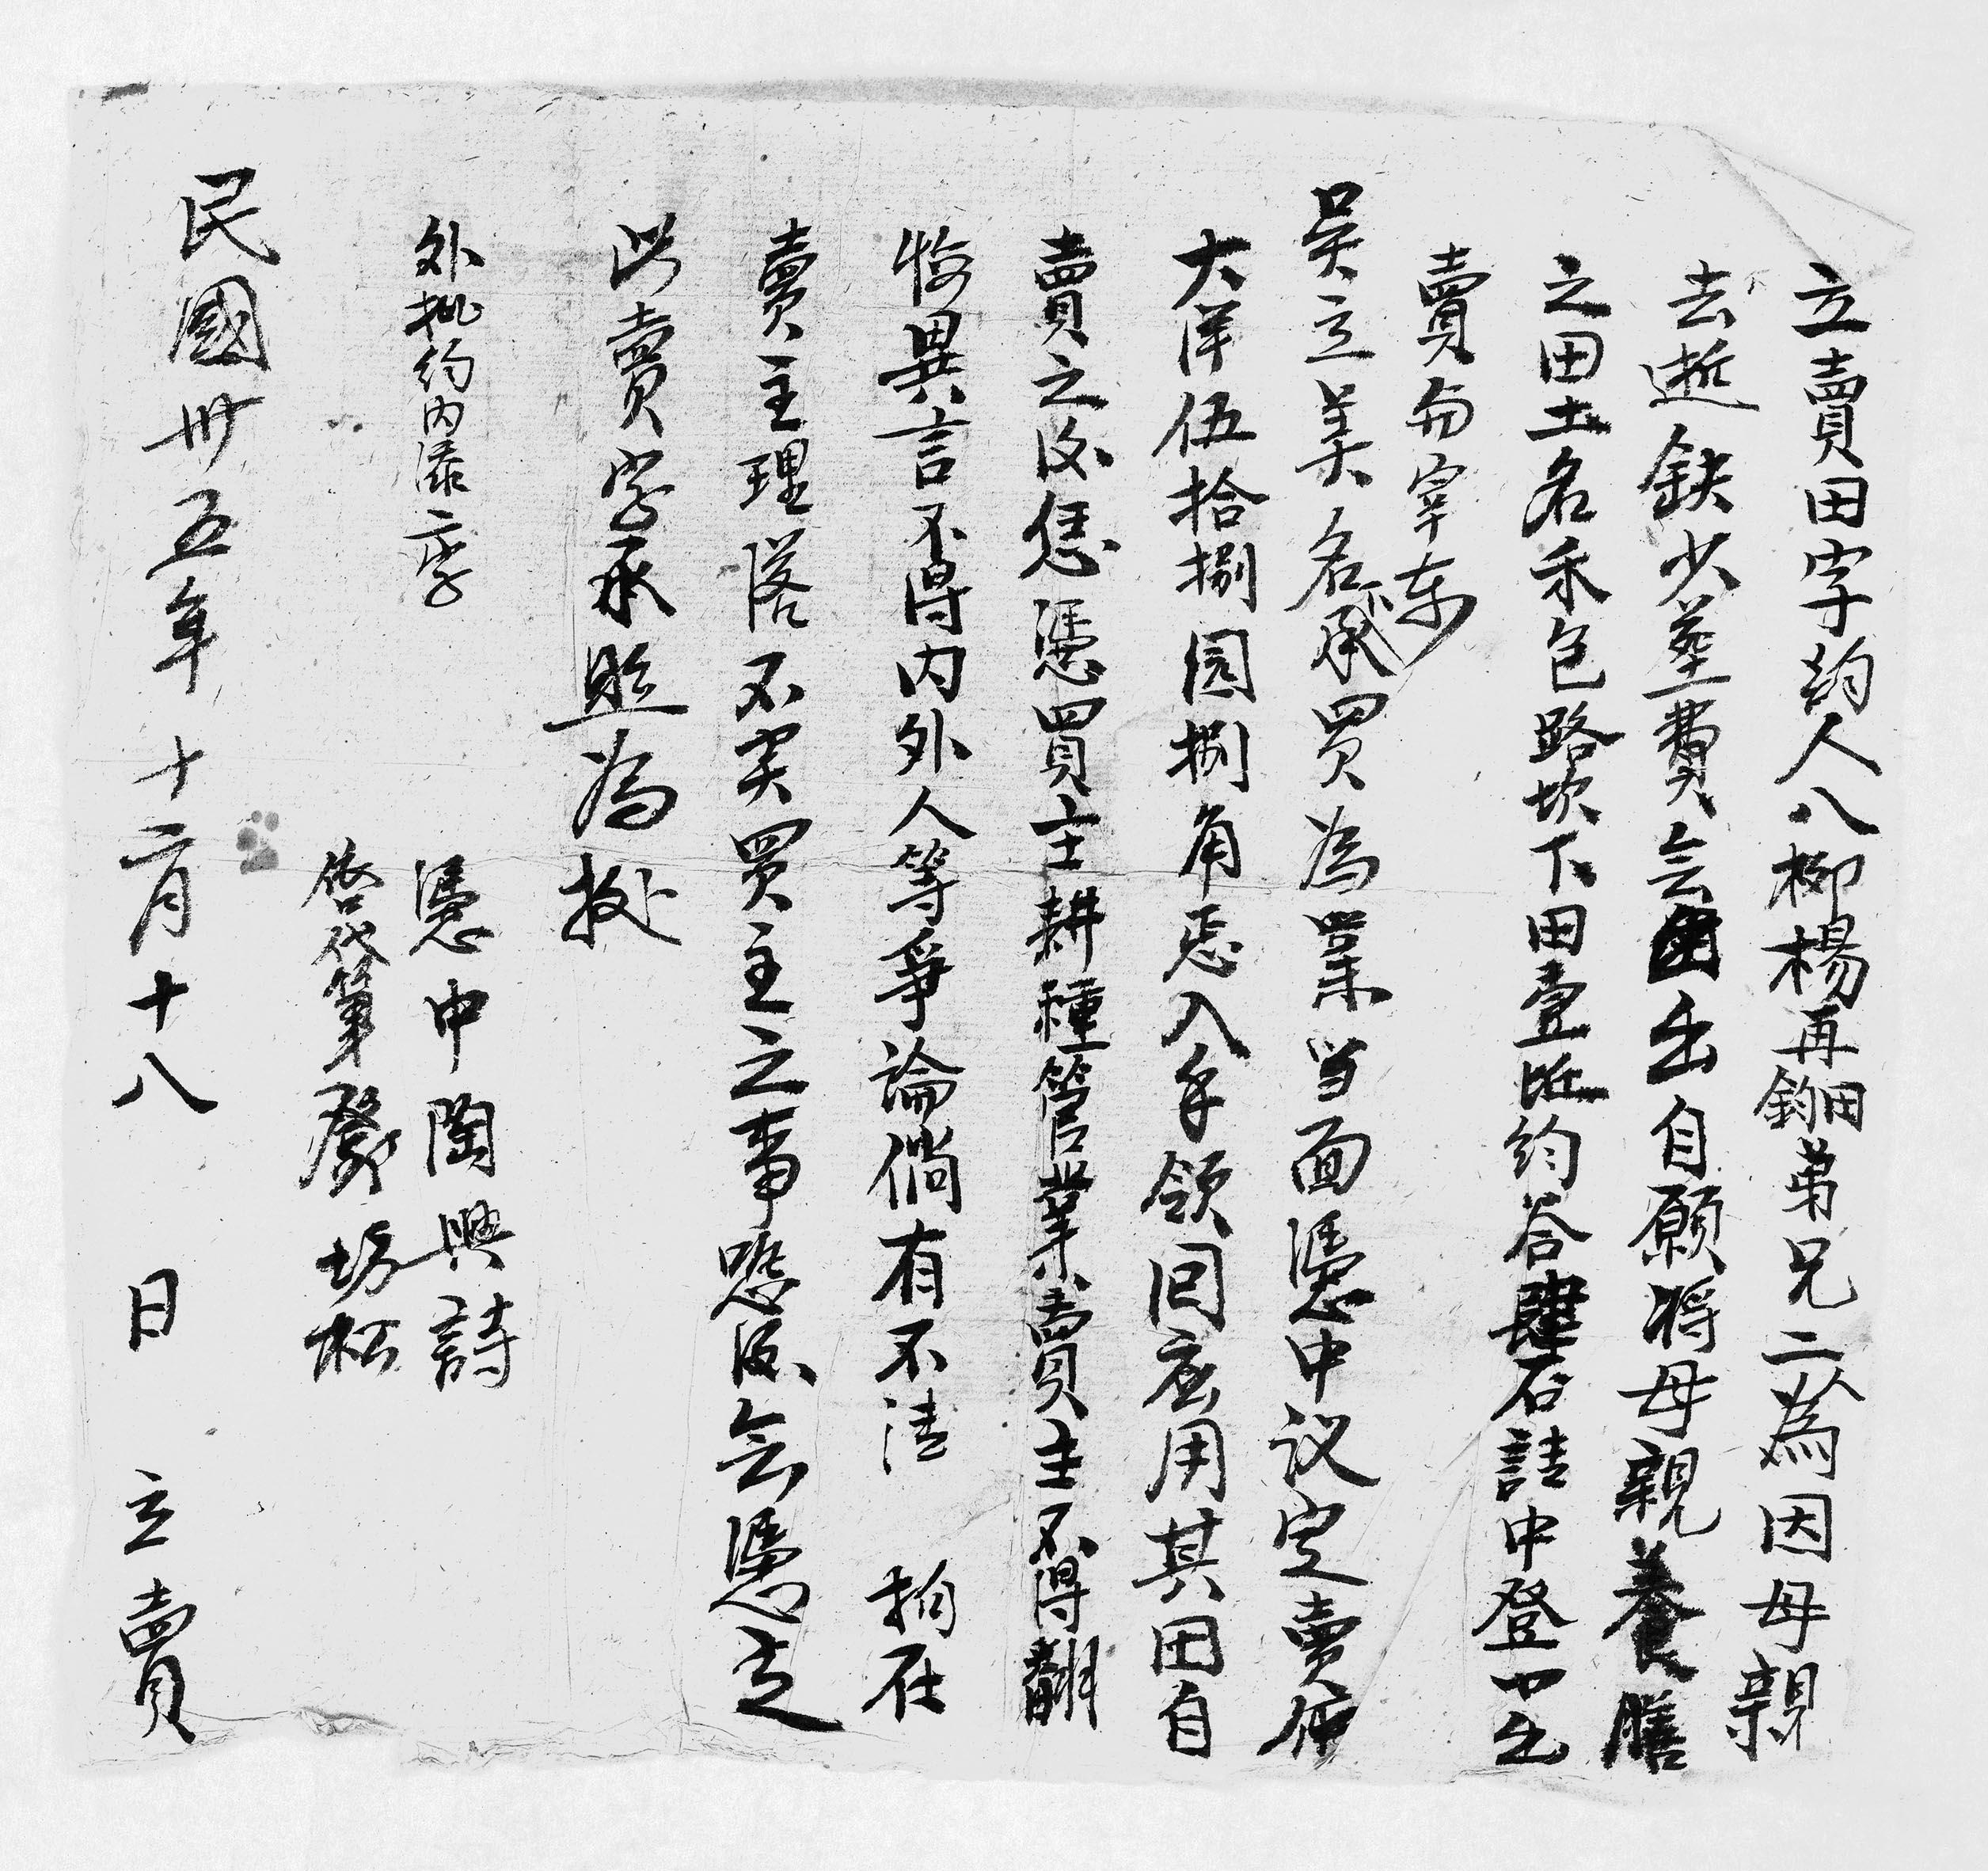 立賣田字約人八柳楊再釰田弟兄二人為因母親
去逝缺少塟費無出自願將母親養膳
之田土名禾包路坎下田壹坵約谷肆石請中登門出
賣與宰東
吴立美名下承買為業当面憑中议定賣價
大洋伍拾捌园捌角悉入手領回应用其田自
賣之後恁憑買主耕種管業賣主不得翻
悔異言不得内外人等爭論倘有不清拘在
賣主理落不関買主之事恐後無憑立
此賣字承照為據
外批約内添二字
憑中陶興詩
依口代筆鄧坊松
民國卅五年十二月十八日立賣